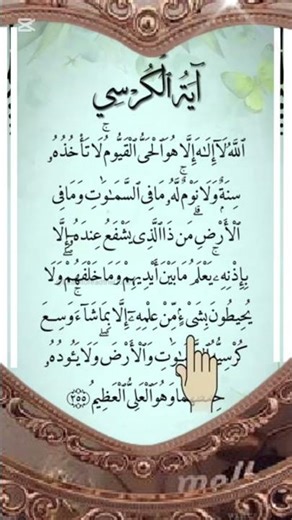 آيَةُ ٱلْكُرْسِي
ٱللَّهُ لَآ إِلَٰهَ إِلَّا هُوَ ٱلْحَىُّ ٱلْقَيُّومُ ۚ لَا تَأْخُذُهُۥ
سِنَةٌ وَلَا نَوْمٌ ۚ لَّهُۥ مَا فِى ٱلسَّمَٰوَٰتِ وَمَا فِى
ٱلْأَرْضِ ۗ مَن ذَا ٱلَّذِى يَشْفَعُ عِندَهُۥٓ إِلَّا
بِإِذْنِهِۦ ۚ يَعْلَمُ مَا بَيْنَ أَيْدِيهِمْ وَمَا خَلْفَهُمْ ۖ وَلَا
يُحِيطُونَ بِشَىْءٍ مِّنْ عِلْمِهِۦٓ إِلَّا بِمَا شَآءَ ۚ وَسِعَ
كُرْسِيُّهُ وَٱلْأَرْضَ ۖ وَلَا يَـُٔودُهُۥ
وَهُوَ ٱلْعَلِىُّ ٱلْعَظِيمُ ٢٥٥
CapCut